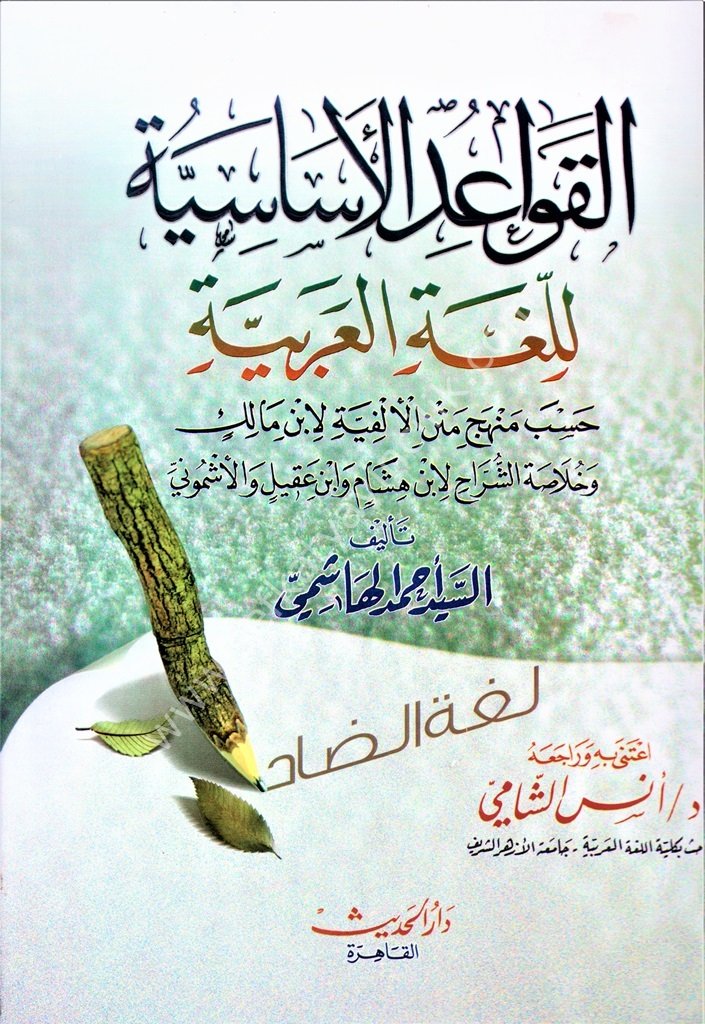 القَوَاعِدُ الأَسَاسِيَّة
لِلُّغَةِ العَرَبِيَّةِ
حَسْبَ مَنْهَجِ مَتْنِ الْأَلْفِيَّةِ لِابْنِ مَالِكٍ
وَخُلَاصَةِ الشُّرَّاحِ لِابْنِ هِشَامٍ وَابْنِ عَقِيلٍ وَالأُشْمُونِيِّ
تَأليْف
السَّيِّد أحمد الهَاشِمِيّ
لغة الضاد
اعْتَنَى بِهِ وَرَاجَعَهُ
د/أنس الشَّامِيّ
بكلية اللغة العربيّة - جامعة الأزهر الشريف
دَارُ الحَدِيث
القَاهِرَة